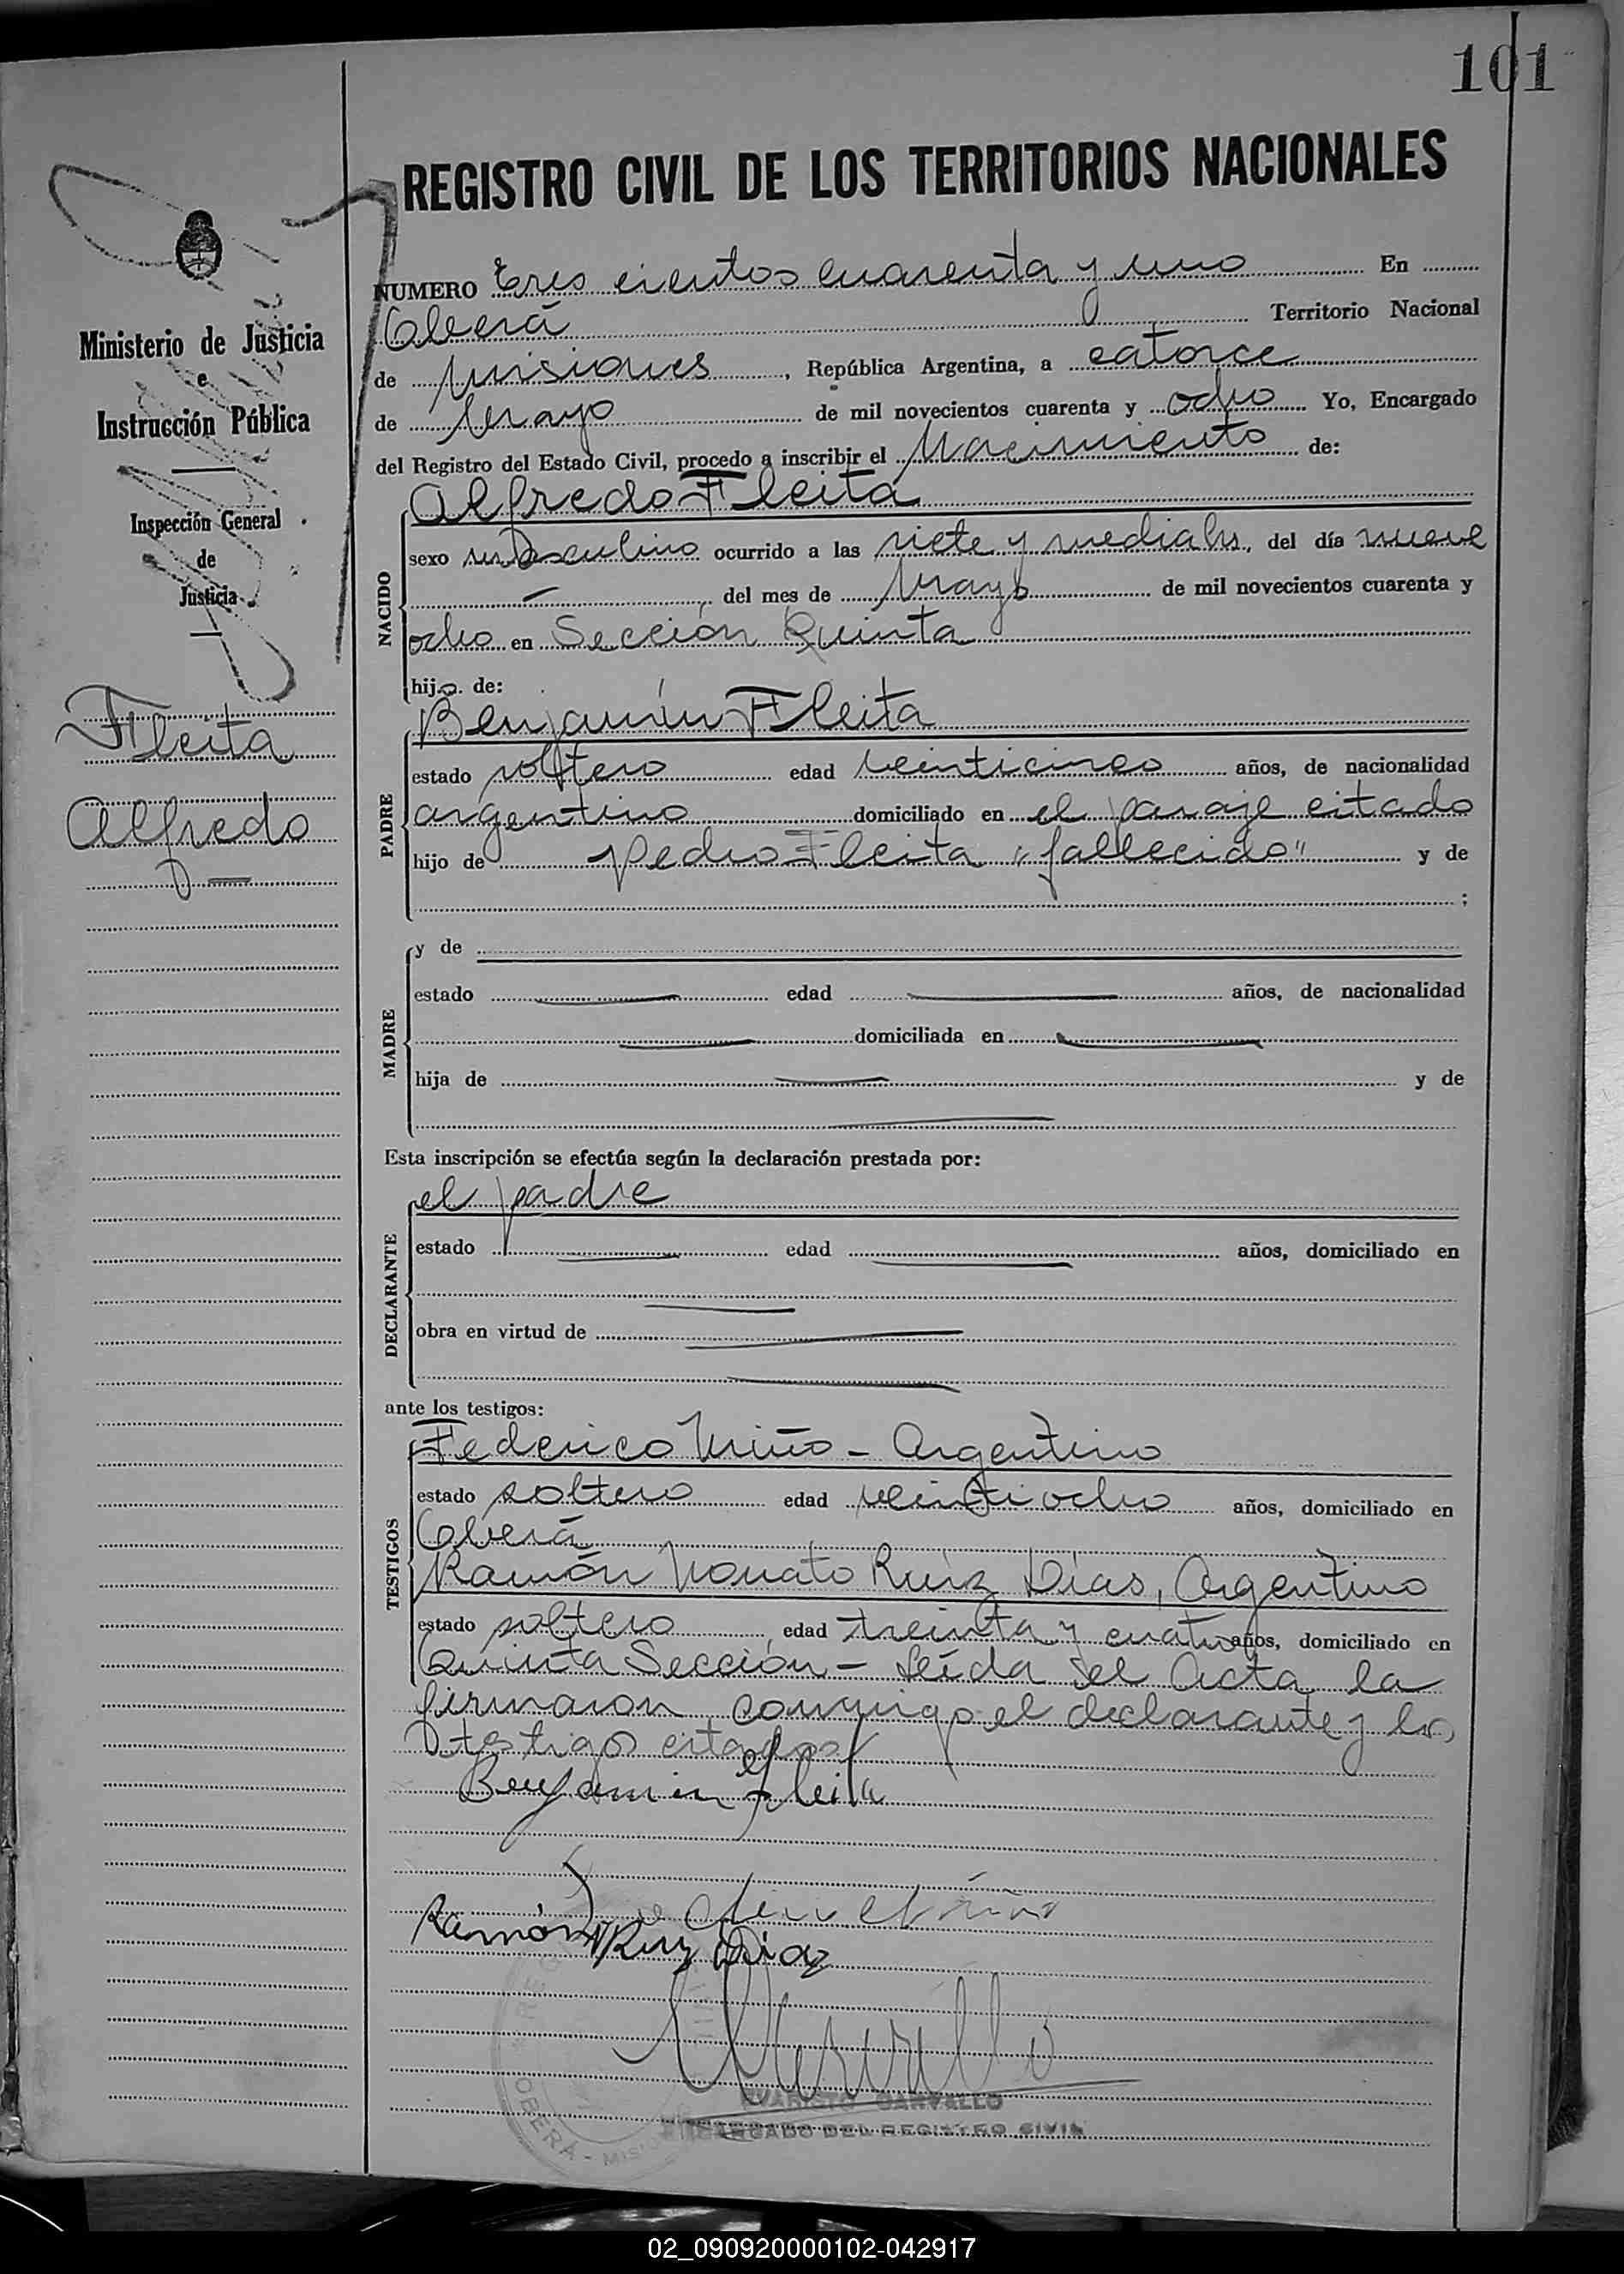 101
REGISTRO CIVIL DE LOS TERRITORIOS NACIONALES
Ministerio de Justicia
e
Instrucción Pública
Inspección General
de
Justicia
Fleita
Alfredo
NUMERO Tres cientos cuarenta y uno En
Oberá Territorio Nacional
de Misiones, República Argentina, a catorce
de Mayo de mil novecientos cuarenta y ocho Yo, Encargado
del Registro del Estado Civil, procedo a inscribir el Nacimiento de:
NACIDO
Alfredo Fleita
sexo masculino ocurrido a las siete y media hs, del día nueve
del mes de Mayo de mil novecientos cuarenta y
ocho en Sección Quinta
hijo de:
PADRE
Benjamín Fleita
estado soltero edad veinticinco años, de nacionalidad
argentino domiciliado en el paraje citado
hijo de Pedro Fleita "fallecido" y de
;
MADRE
y de
estado edad años, de nacionalidad
domiciliada en
hija de y de
Esta inscripción se efectúa según la declaración prestada por:
DECLARANTE
el padre
estado edad años, domiciliado en
obra en virtud de
ante los testigos:
TESTIGOS
Federico Miño - Argentino
estado soltero edad veintiocho años, domiciliado en
Oberá
Ramón Nonato Ruiz Días, Argentino
estado soltero, edad treinta y cuatro años, domiciliado en
Quinta Sección - Leída el Acta la
firmaron conmigo el declarante y los
testigos citados
Benjamin Fleita
Ramón N Ruiz Diaz
EVARISTO CARVALLO
ENCARGADO DEL REGISTRO CIVIL
OBERÁ - MISIONES
02_090920000102-042917